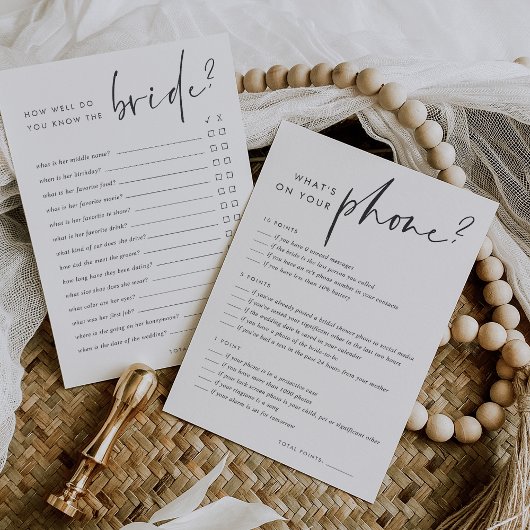 HOW WELL DO
YOU KNOW THE bride?
✓ X
what is her middle name?
when is her birthday?
what is her favorite food?
what is her favorite movie?
what is her favorite tv show?
what is her favorite drink?
what kind of car does she drive?
how did she meet the groom?
how long have they been dating?
what size shoe does she wear?
what color are her eyes?
what was her first job?
where is she going on her honeymoon?
when is the date of the wedding?
TOTAL
WHAT'S
ON YOUR phone?
10 POINTS
if you have 0 unread messages
if the bride is the last person you called
if you have an ex's phone number in your contacts
if you have less than 10% battery
5 POINTS
if you've already posted a bridal shower photo to social media
if you've texted your significant other in the last two hours
if the wedding date is saved in your calendar
if you have a photo of the bride-to-be
if you've had a text in the past 24 hours from your mother
1 POINT
if your phone is in a protective case
if you have more than 1000 photos
if your lock screen photo is your child, pet or significant other
if your ringtone is a song
if your alarm is set for tomorrow
TOTAL POINTS: